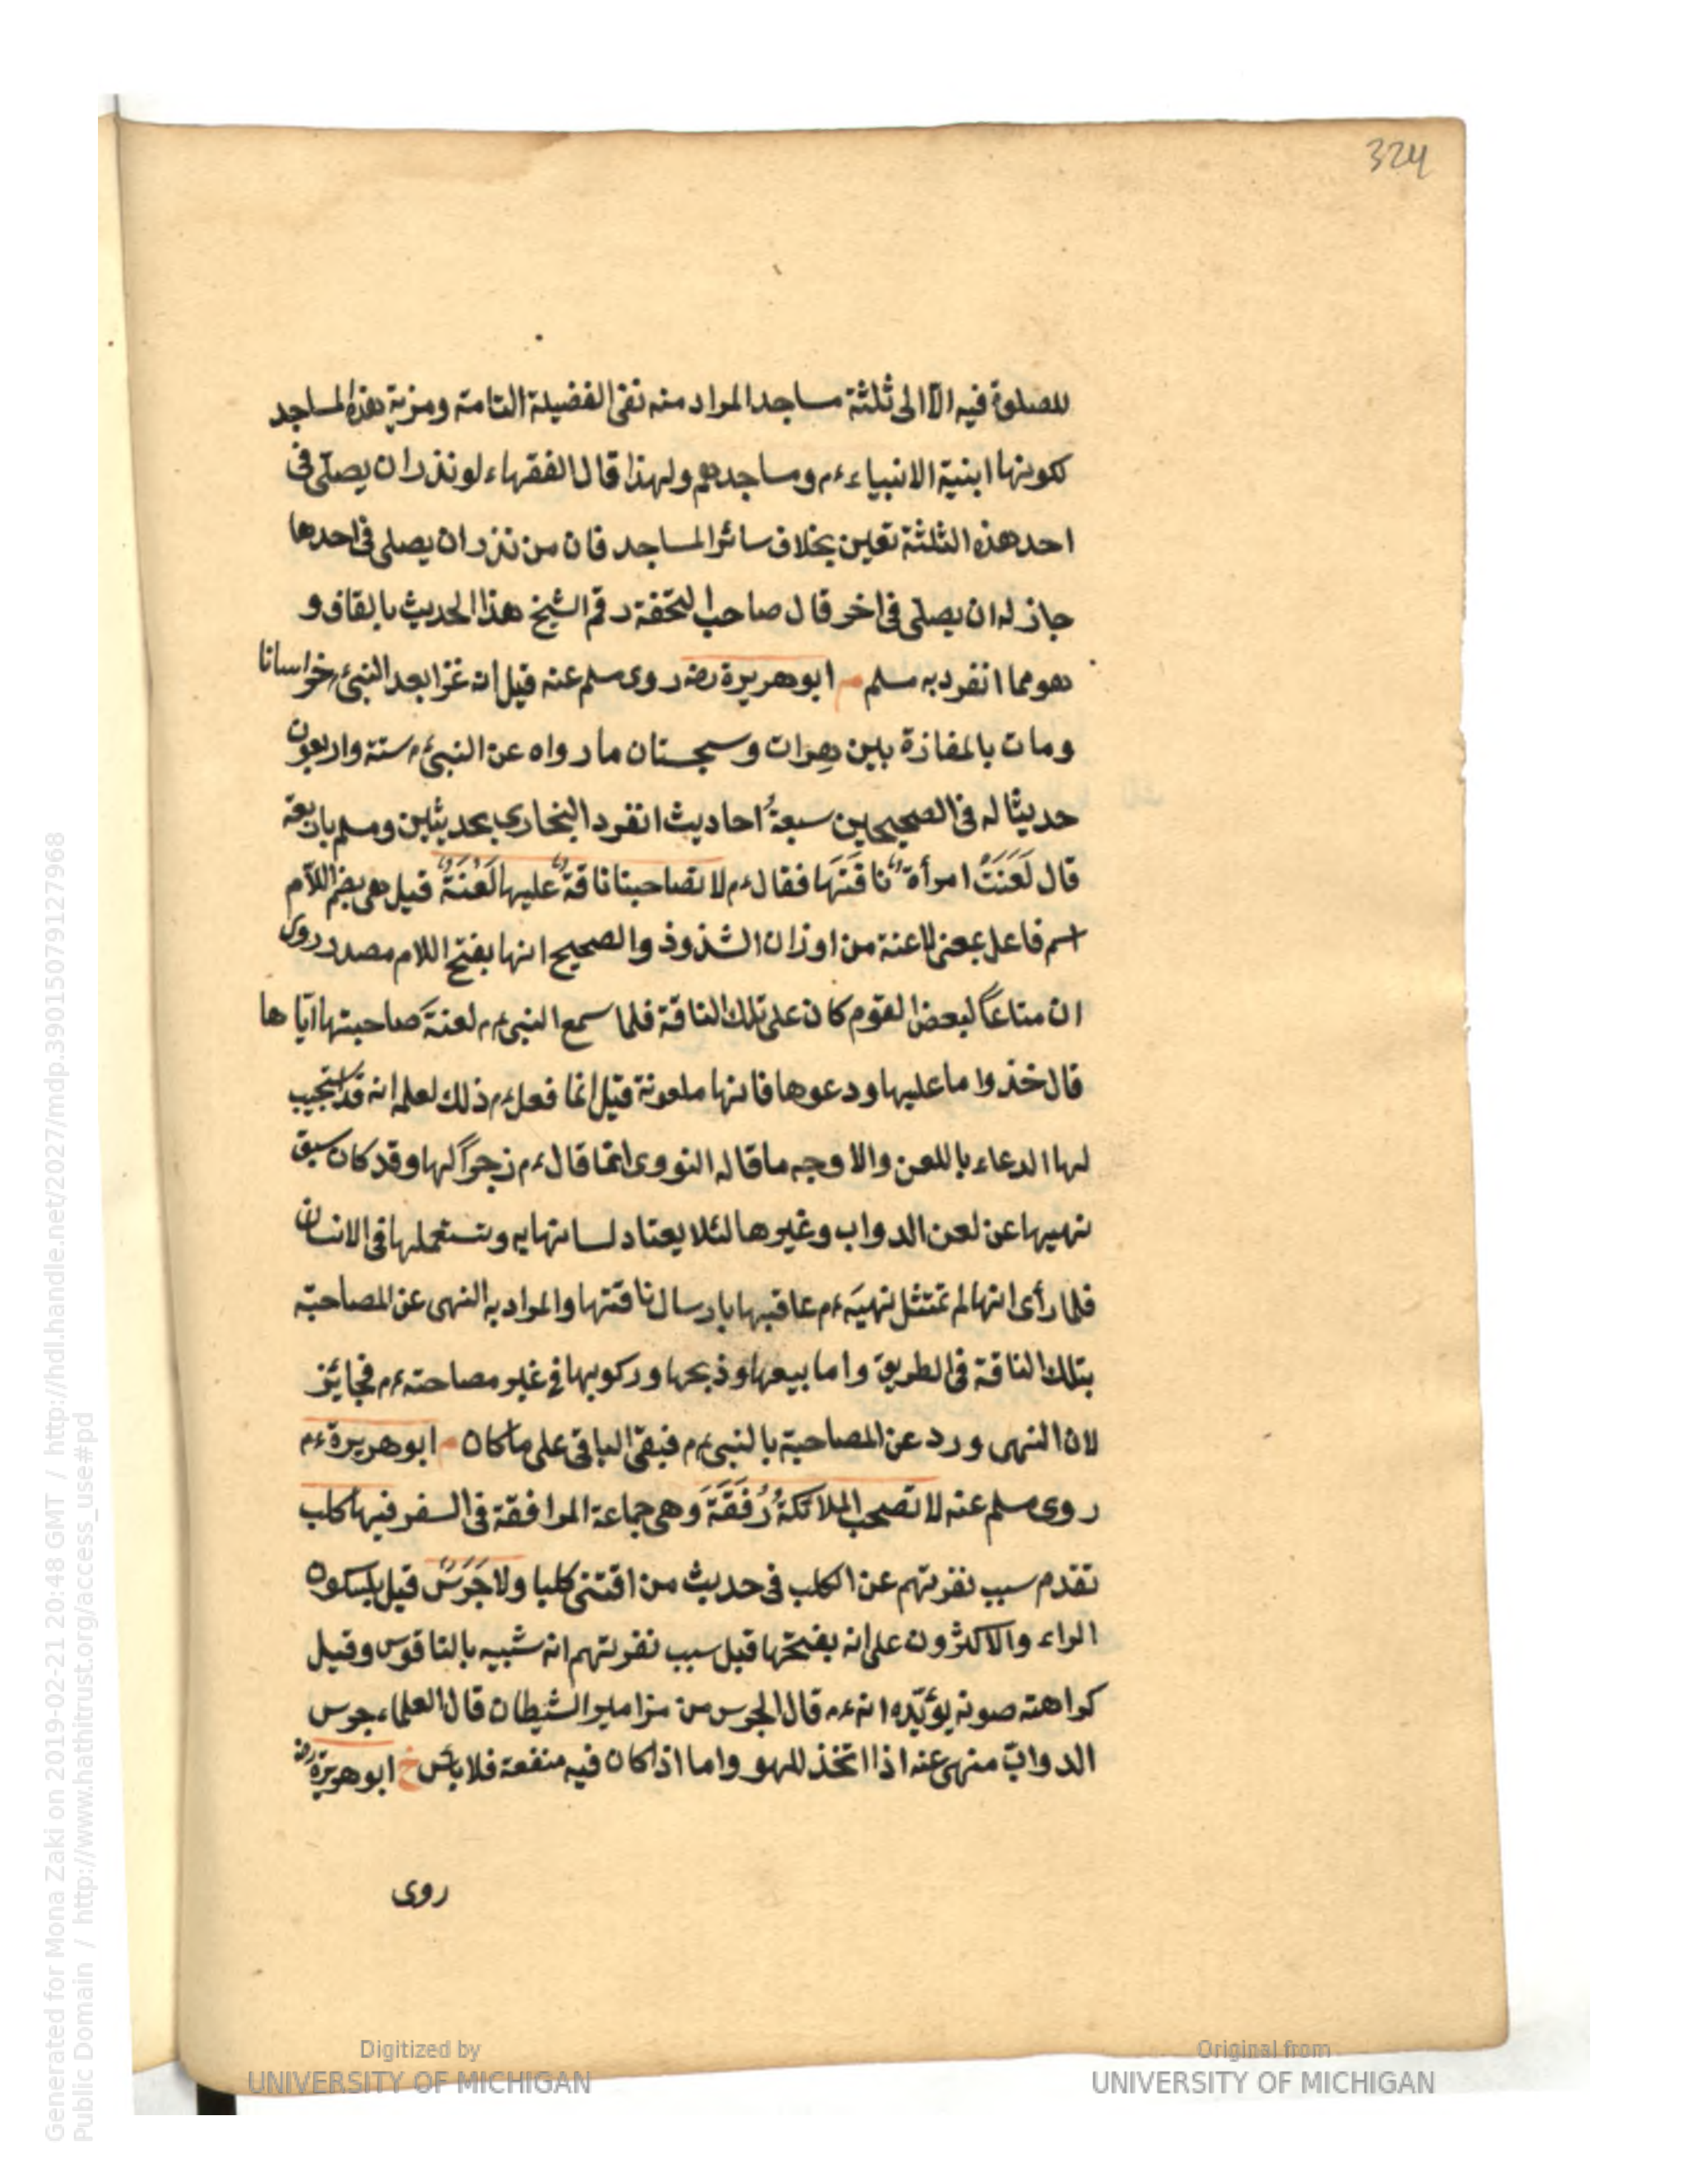 324
للصلوة فيه الا الى ثلثة مساجد المراد منه نفى الفضيلة التامة ومزية هذه المساجد
لكونها ابنية الانبياء ءم ومساجدهم ولهذا قال الفقهاء لو نذر ان يصلى فى
احد هذه الثلثة تعين بخلاف سائر المساجد فان من نذر ان يصلى فى احدها
جاز له ان يصلى فى اخر قال صاحب التحفة رقم الشيخ هذا الحديث بالقاف و
هو مما انفرد به مسلم م ابو هريرة رضه روى مسلم عنه قيل انه غزا بعد النبى ءم خراسانا
ومات بالمفازة بين هرات وسجستان ما رواه عن النبى ءم ستة واربعون
حديثا له فى الصحيحين سبعةُ احاديث انفرد البخارى بحديثين ومسلم باربعة
قال لَعَنَتْ امرأة ناقَتَهَا فقال ءم لا تصاحبنا ناقة عليها لَعْنَةٌ قيل هى بضم اللام
اسم فاعل بمعنى لاعنة من اوزان الشذوذ والصحيح انها بفتح اللام مصدر روى
ان متاعاً لبعض القوم كان على تلك الناقة فلما سمع النبى ءم لعنةَ صاحبتها اياها
قال خذوا ما عليها ودعوها فانها ملعونة قيل انما فعل ءم ذلك لعلمه انه قد استجيب
لها الدعاء باللعن والاوجه ما قاله النووى انما قال ءم زجراً لها وقد كان سبق
نهيها عن لعن الدواب وغيرها لئلا يعتاد لسانها به وتستعملها فى الانسان
فلما رأى انها لم تمتثل نهيَه ءم عاقبها بارسال ناقتها والمراد به النهى عن المصاحبة
بتلك الناقة فى الطريق واما بيعها وذبحها وركوبها فى غير مصاحبته ءم فجائز
لان النهى ورد عن المصاحبة بالنبى ءم فبقى الباقى على ما كان م ابو هريرة ءم
روى مسلم عنه لا تصحب الملائكةُ رُفقَةً وهى جماعة المرافقة فى السفر فيها كلب
تقدم سبب نفرتهم عن الكلب فى حديث من اقتنى كلبا ولا جَرَسٌ قيل بسكون
الراء والاكثرون على انه بفتحها قيل سبب نفرتهم انه شبيه بالناقوس وقيل
كراهته صوته يؤيّده انه ءم قال الجرس من مزامير الشيطان قال العلماء جرس
الدوابّ منهى عنه اذا اتخذ للهو واما اذا كان فيه منفعة فلا بأس خ ابو هريرة رضه
روى
Generated for Mona Zaki on 2019-02-21 20:48 GMT / http://hdl.handle.net/2027/mdp.39015079127968
Public Domain / http://www.hathitrust.org/access_use#pd
Digitized by
UNIVERSITY OF MICHIGAN
Original from
UNIVERSITY OF MICHIGAN